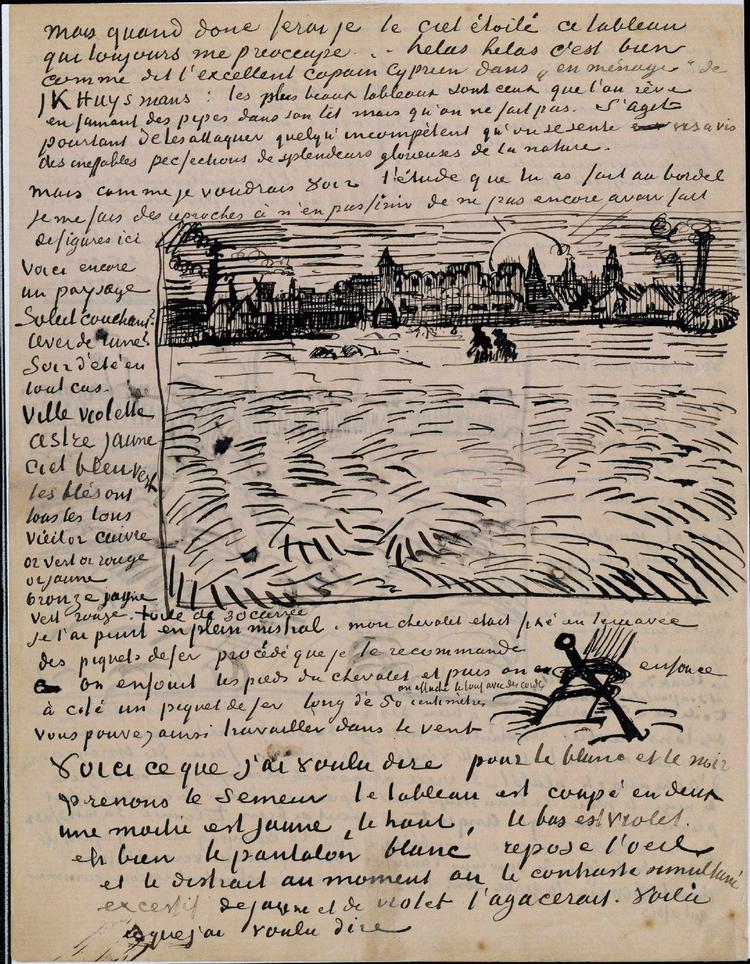 mais quand donc ferai je le ciel étoilé ce tableau
qui toujours me préoccupe . . helas helas c'est bien
comme dit l'excellent copain Cyprien dans „en ménage" de
J K Huysmans : les plus beaux tableaux sont ceux que l'on rêve
en fumant des pipes dans son lit mais qu'on ne fait pas. S'agit
pourtant de les attaquer quelqu'incompétent qu'on se sente vis a vis
des ineffables perfections de splendeurs glorieuses de la nature.
mais comme je voudrais voir l'étude que tu as fait au bordel
je me fais des reproches à n'en pas finir de ne pas encore avoir fait
de figures ici
Voici encore
un paysage
Soleil couchant?
lever de lune?
Soir d'été en
tout cas.
Ville violette
astre jaune
ciel bleu vert
les blés ont
tous les tons
vieil or cuivre
or vert or rouge
or jaune
bronze jaune
vert rouge. toile de 30 carrée
je l'ai peint en plein mistral. mon chevalet etait fixé en terre avec
des piquets de fer procédé que je te recommande
on enfouit les pieds du chevalet et puis on enfonce
à côté un piquet de fer long de 50 centimètres
on attache le tout avec des cordes
vous pouvez ainsi travailler dans le vent
Voici ce que j'ai voulu dire pour le blanc et le noir
prenons le Semeur le tableau est coupé en deux
une moitié est jaune, le haut, le bas est violet.
eh bien le pantalon blanc repose l'oeil
et le distrait au moment ou le contraste simultané
excessif de jaune et de violet l'agacerait. Voilà
ce que j'ai voulu dire